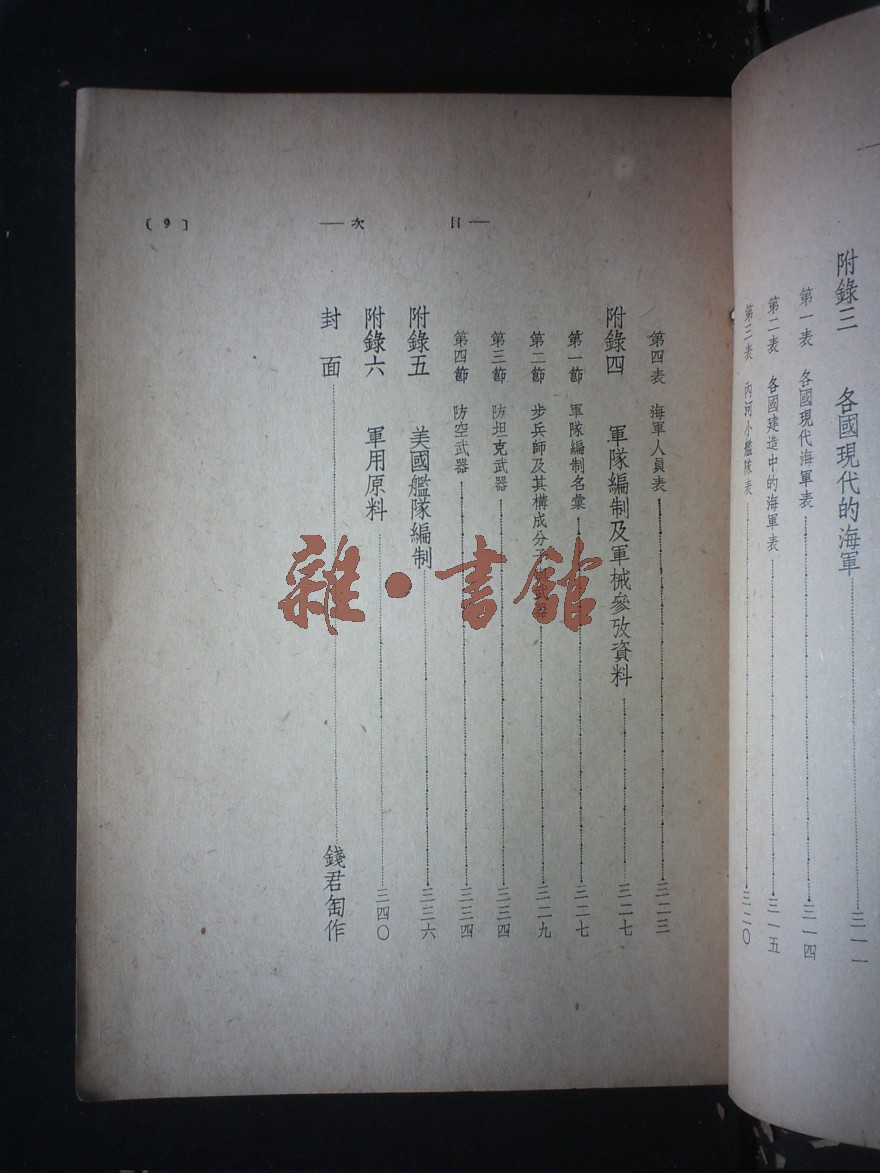 附錄三　各國現代的海軍……三一一
第一表　各國現代海軍表……三一四
第二表　各國建造中的海軍表……三一五
第三表　內河小艦隊表……三二〇
—目　次—
〔9〕
第四表　海軍人員表……三二三
附錄四　軍隊編制及軍械參攷資料……三二七
第一節　軍隊編制名彙……三二七
第二節　步兵師及其構成分子　武器……三二九
第三節　防坦克武器……三三四
第四節　防空武器……三三四
附錄五　美國艦隊編制……三三六
附錄六　軍用原料……三四〇
封　面……錢君匋作
雜·書館